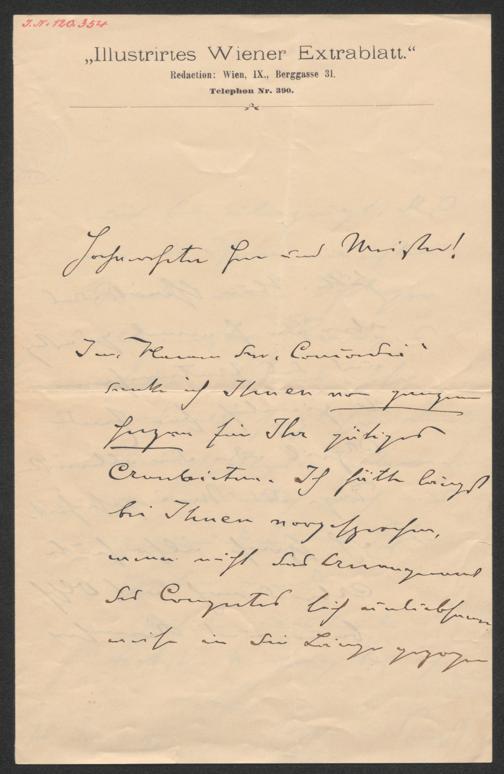 J.N. 120.354
„Illustrirtes Wiener Extrablatt.“
Redaction: Wien, IX., Berggasse 31.
Telephon Nr. 390.
Hochverehrter Herr und Meister!
Im Namen der „Concordia“
danke ich Ihnen von ganzem
Herzen für Ihr gütiges
Anerbieten. Ich hätte längst
bei Ihnen vorgesprochen,
wenn nicht das Arrangement
des Comités sich unliebsamer
weise in die Länge gezogen